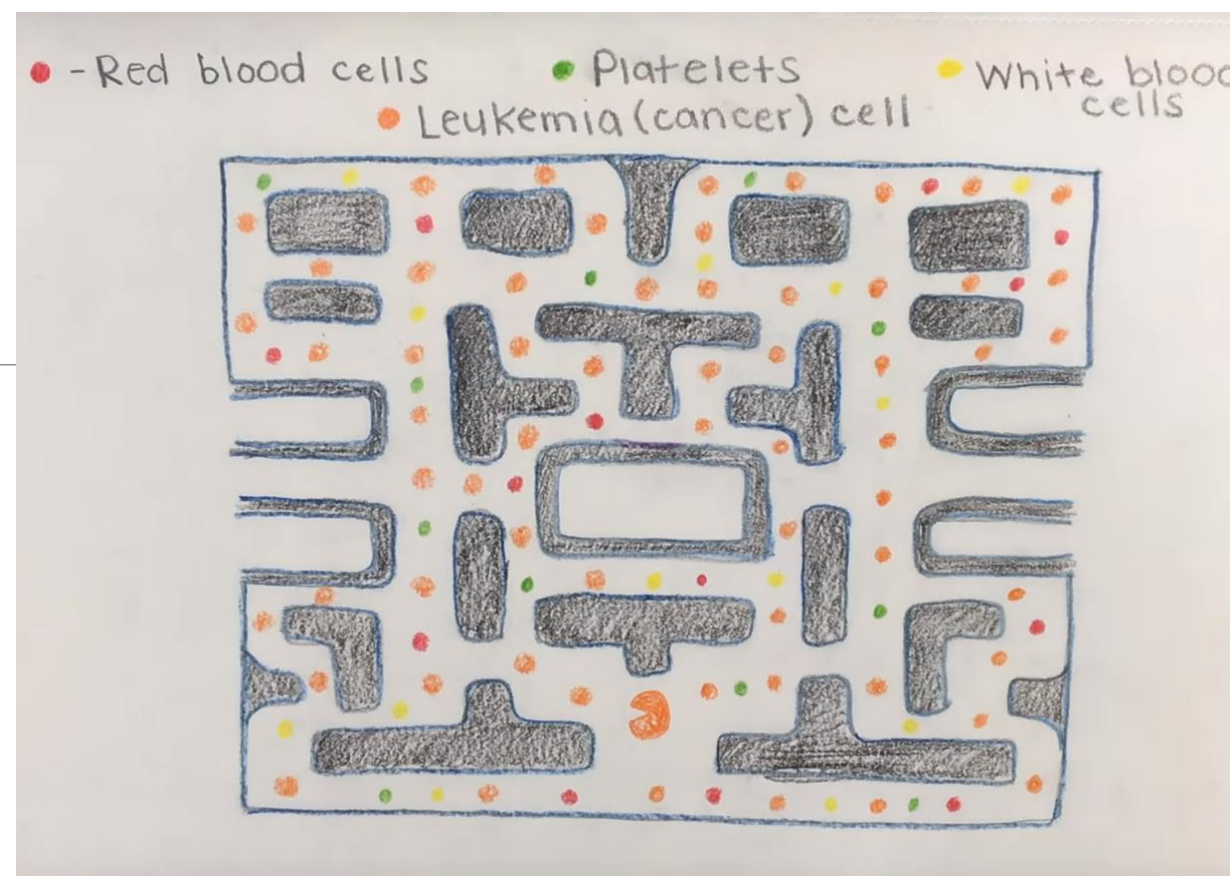 - Red blood cells Platelets White blood
cells
Leukemia (cancer) cell